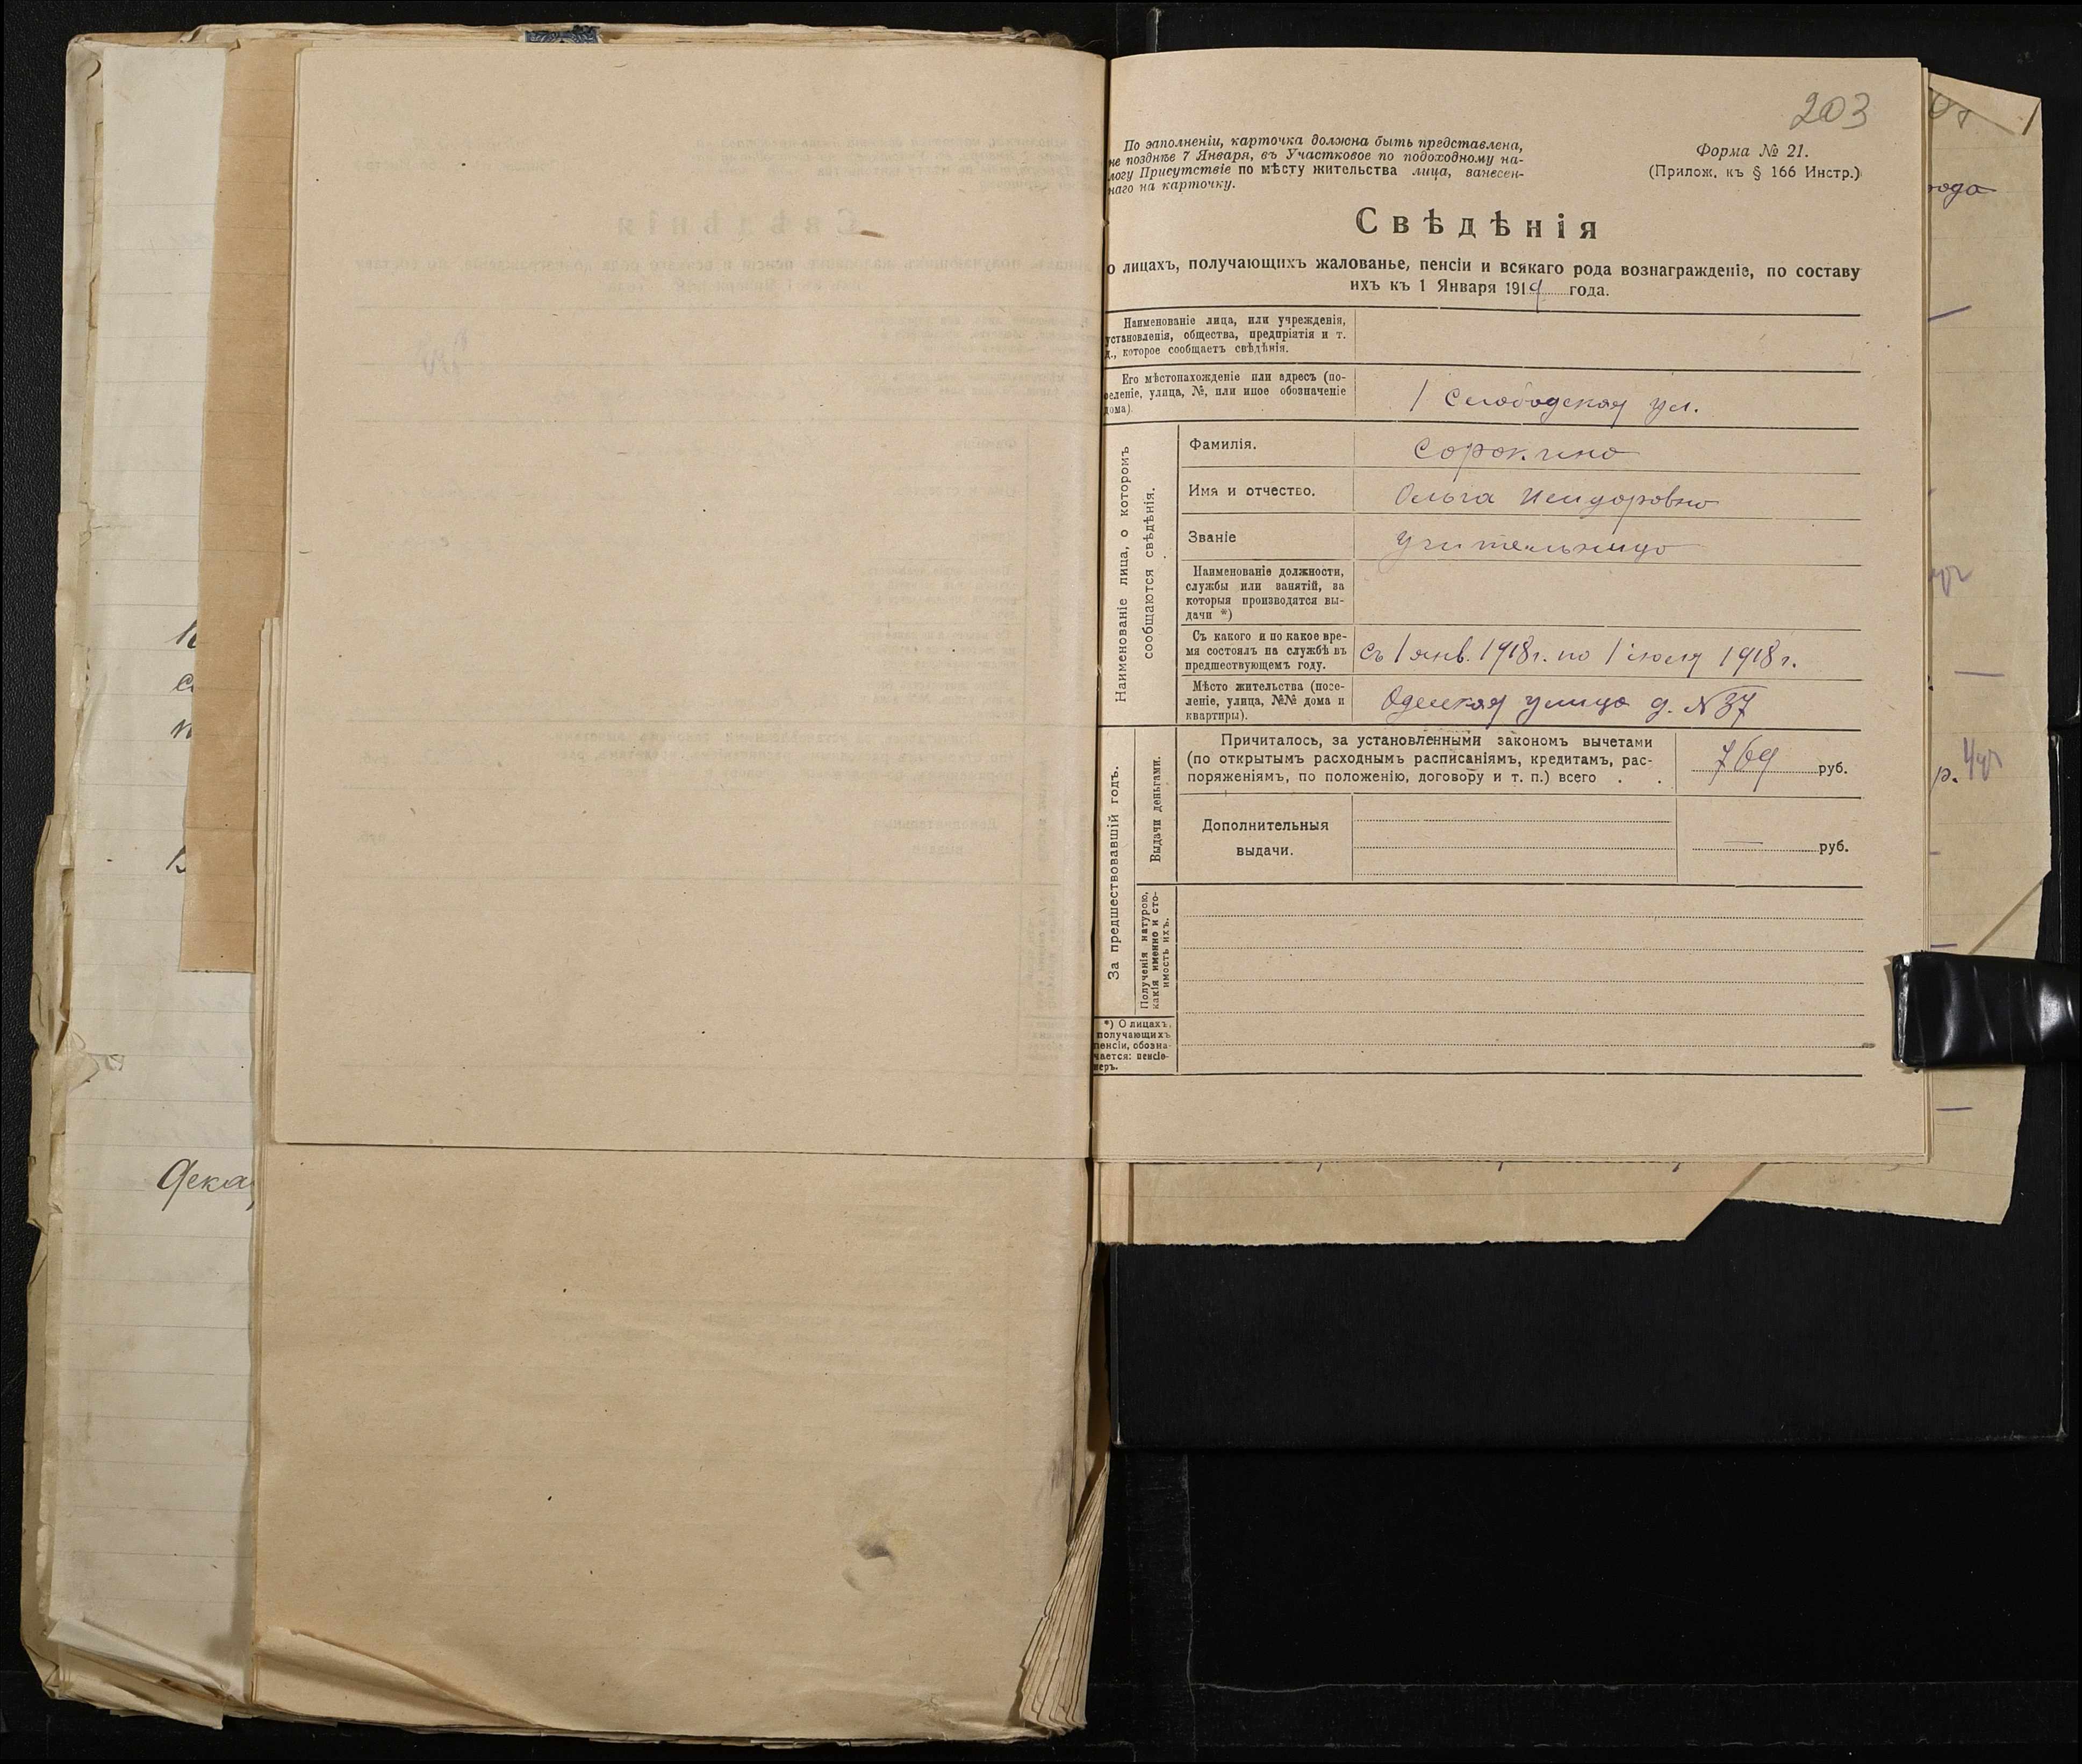 203
По заполненіи, карточка должна быть представлена,
не позднѣе 7 Января, въ Участковое по подоходному на-
логу Присутствіе по мѣсту жительства лица, занесен-
наго на карточку.
Форма № 21.
(Прилож. къ § 166 Инстр.)
Свѣдѣнія
о лицахъ, получающихъ жалованье, пенсіи и всякаго рода вознагражденіе, по составу
ихъ къ 1 Января 1919 года.
Наименованіе лица, или учрежденія,
установленія, общества, предпріятія и т.
д., которое сообщаетъ свѣдѣнія.
Его мѣстонахожденіе или адресъ (по-
селеніе, улица, №, или иное обозначеніе
дома)
1 Слободская ул.
Наименованіе лица, о которомъ
сообщаются свѣдѣнія.
Фамилія.
Сорокина
Имя и отчество.
Ольга Исидоровна
Званіе
Учительница
Наименованіе должности,
службы или занятій, за
которыя производятся вы-
дачи *)
Съ какого и по какое вре-
мя состоялъ на службѣ въ
предшествующемъ году.
Съ 1 янв. 1918 г. по 1 іюля 1918 г.
Мѣсто жительства (посе-
леніе, улица, №№ дома и
квартиры).
Одесская улица д. № 37
За предшествовавшій годъ.
Выдачи деньгами.
Причиталось, за установленными закономъ вычетами
(по открытымъ расходнымъ расписаніямъ, кредитамъ, рас-
поряженіямъ, по положенію, договору и т. п.) всего . .
769 руб.
Дополнительныя
выдачи.
— руб.
Полученія натурою,
какія именно и сто-
имость ихъ.
*) О лицахъ,
получающихъ
пенсіи, обозна-
чается: пенсіо-
неръ.
года
р.
Дека